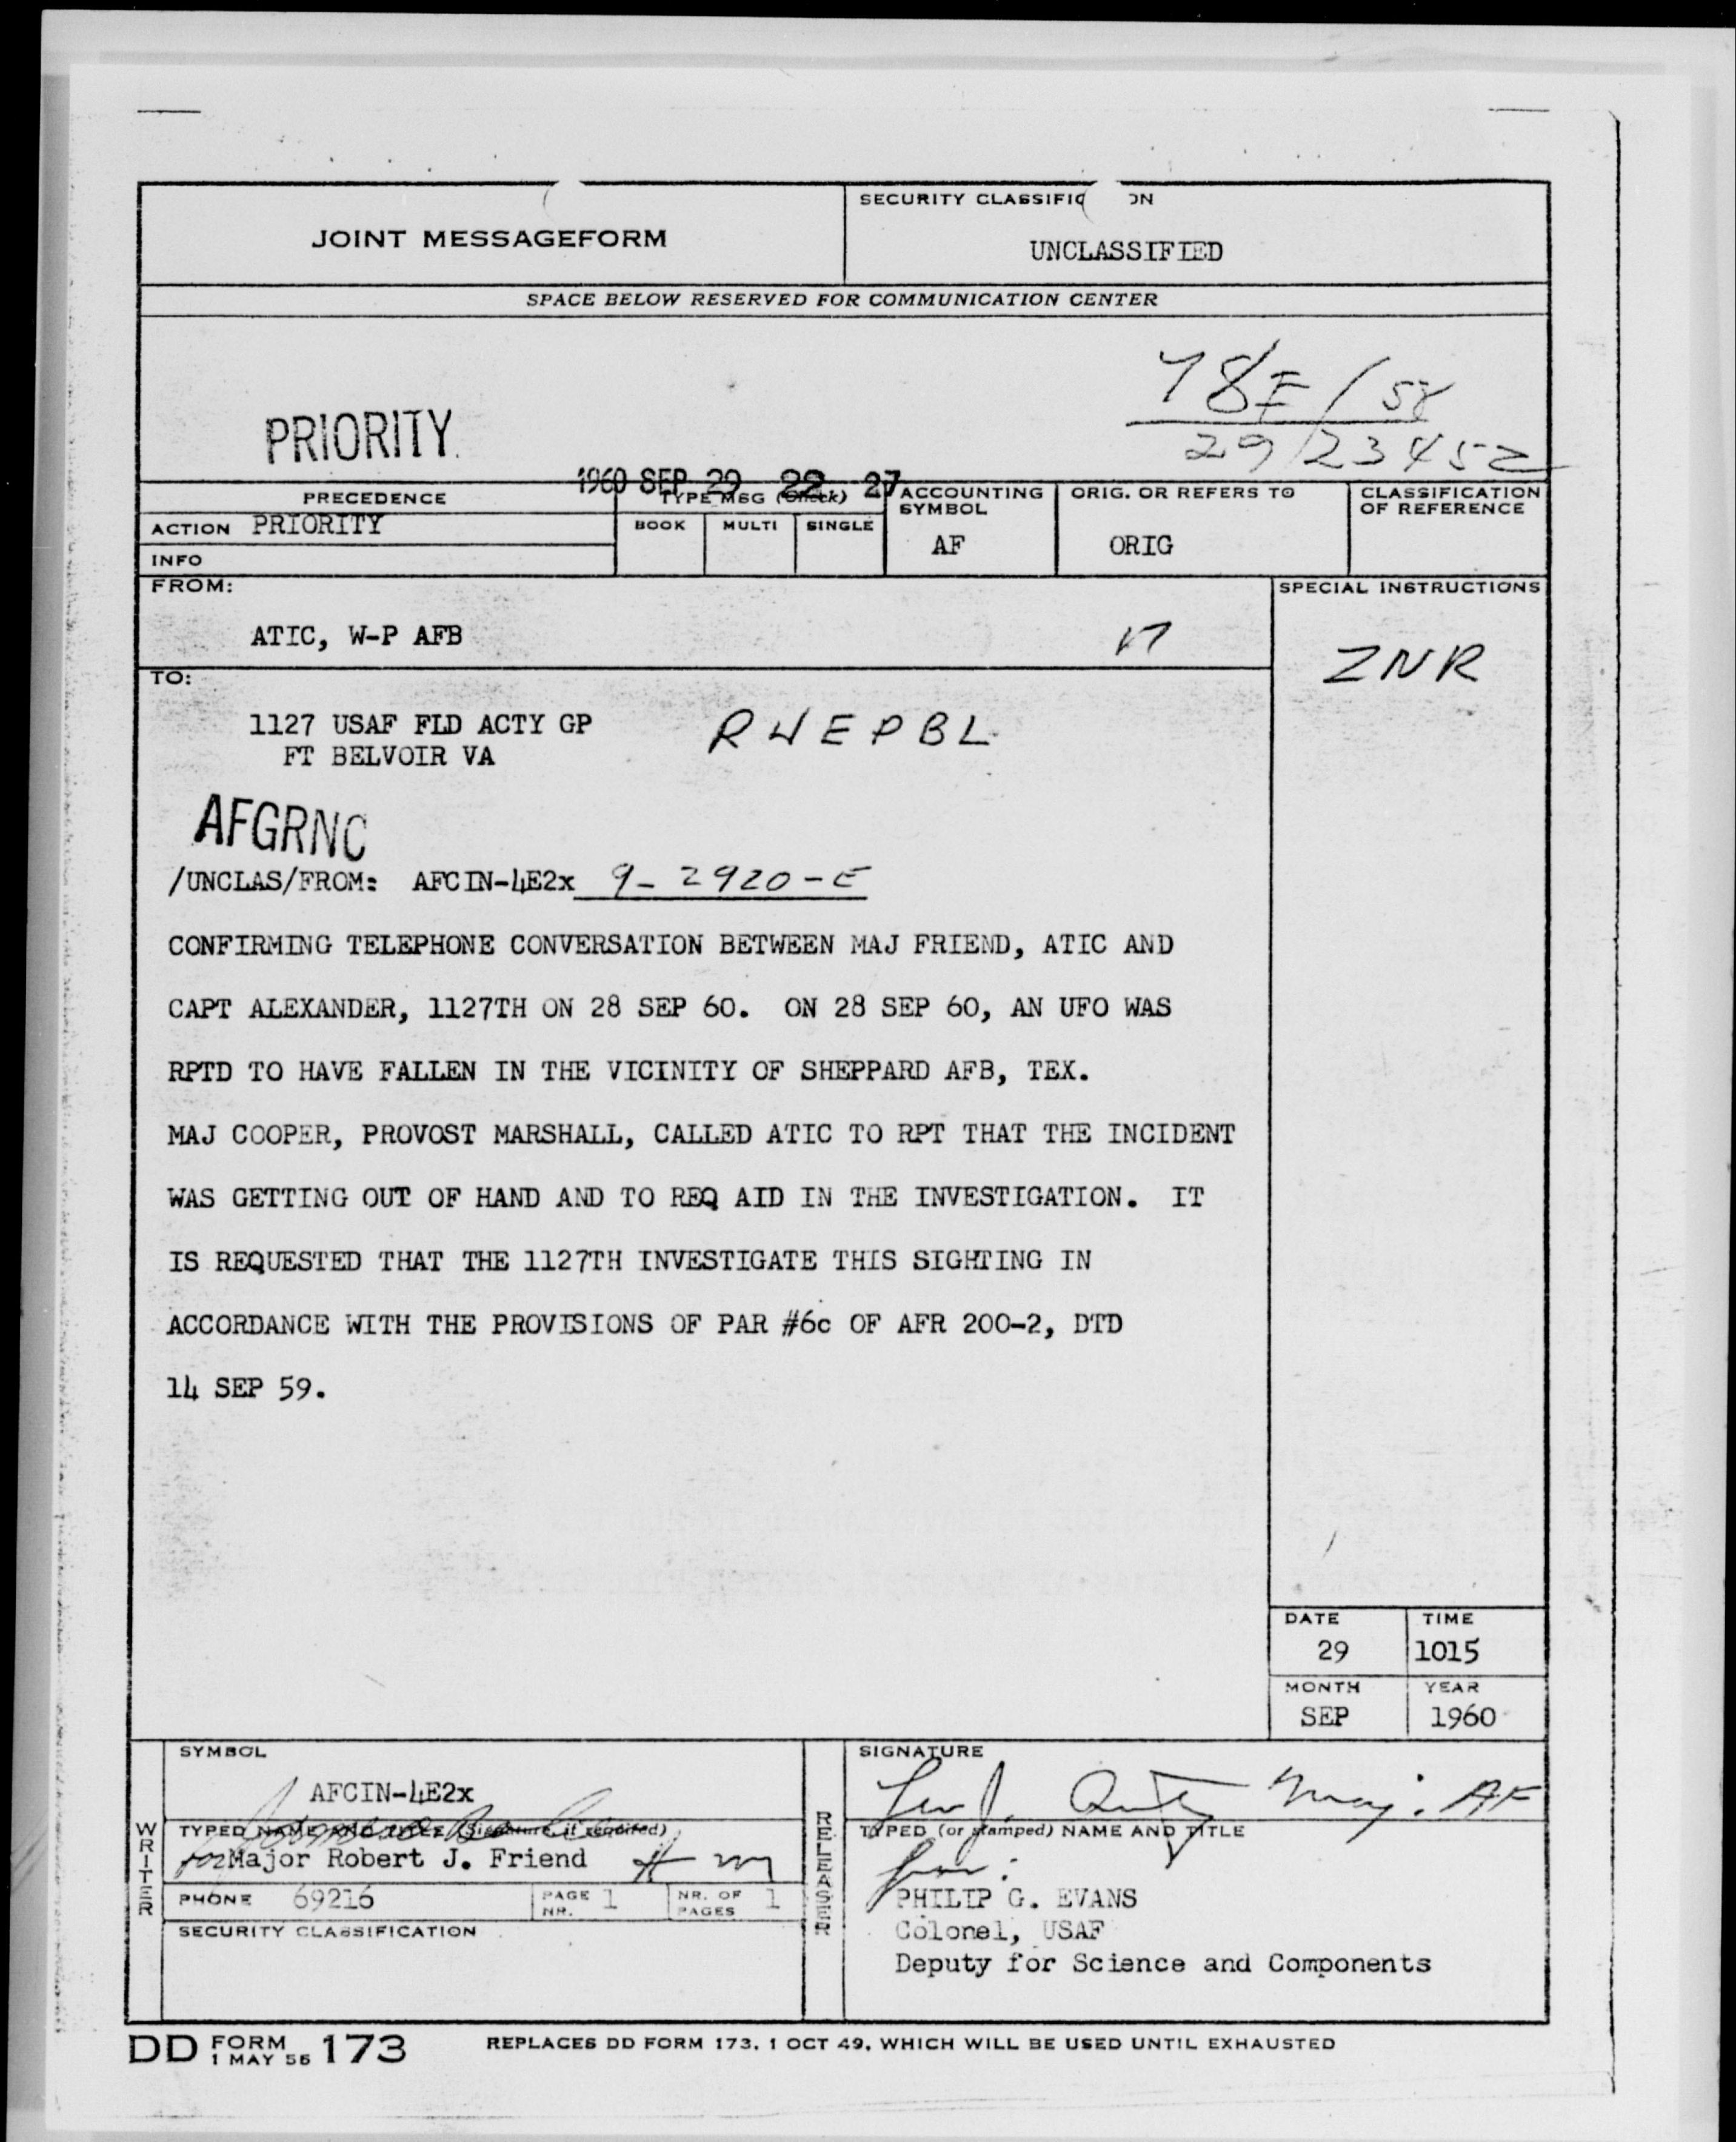 JOINT MESSAGEFORM
SECURITY CLASSIFIC ON
UNCLASSIFIED
SPACE BELOW RESERVED FOR COMMUNICATION CENTER
PRIORITY
29/2345Z
1960 SEP 29 22 27
PRECEDENCE
TYPE MSG (Check)
ACCOUNTING SYMBOL
ORIG. OR REFERS TO
CLASSIFICATION OF REFERENCE
ACTION PRIORITY
BOOK MULTI SINGLE
AF
ORIG
INFO
FROM:
SPECIAL INSTRUCTIONS
ATIC, W-P AFB
ZNR
TO:
1127 USAF FLD ACTY GP
FT BELVOIR VA
RWEPBL
AFGRNC
/UNCLAS/FROM: AFCIN-4E2x 9-2920-E
CONFIRMING TELEPHONE CONVERSATION BETWEEN MAJ FRIEND, ATIC AND
CAPT ALEXANDER, 1127TH ON 28 SEP 60. ON 28 SEP 60, AN UFO WAS
RPTD TO HAVE FALLEN IN THE VICINITY OF SHEPPARD AFB, TEX.
MAJ COOPER, PROVOST MARSHALL, CALLED ATIC TO RPT THAT THE INCIDENT
WAS GETTING OUT OF HAND AND TO REQ AID IN THE INVESTIGATION. IT
IS REQUESTED THAT THE 1127TH INVESTIGATE THIS SIGHTING IN
ACCORDANCE WITH THE PROVISIONS OF PAR #6c OF AFR 200-2, DTD
14 SEP 59.
DATE TIME
29 1015
MONTH YEAR
SEP 1960
WRITER
SYMBOL
AFCIN-4E2x
TYPED NAME AND TITLE (Signature, if required)
for Major Robert J. Friend
PHONE 69216
PAGE NR. 1
NR. OF PAGES 1
SECURITY CLASSIFICATION
RELEASER
SIGNATURE
Maj. AF
TYPED (or stamped) NAME AND TITLE
for:
PHILIP G. EVANS
Colonel, USAF
Deputy for Science and Components
DD FORM 1 MAY 55 173
REPLACES DD FORM 173, 1 OCT 49, WHICH WILL BE USED UNTIL EXHAUSTED